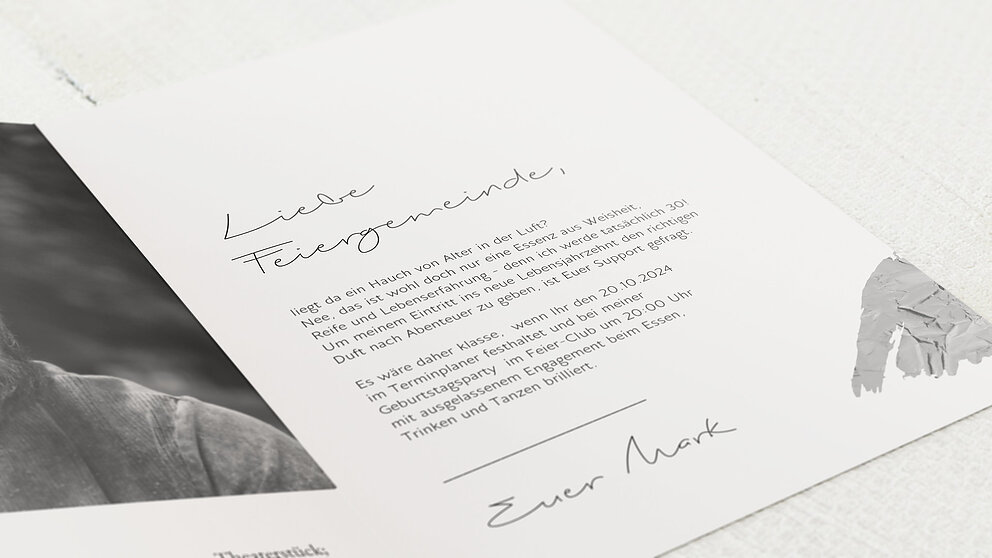 Liebe
Feiergemeinde,
liegt da ein Hauch von Alter in der Luft?
Nee, das ist wohl doch nur eine Essenz aus Weisheit,
Reife und Lebenserfahrung - denn ich werde tatsächlich 30!
Um meinem Eintritt ins neue Lebensjahrzehnt den richtigen
Duft nach Abenteuer zu geben, ist Euer Support gefragt.
Es wäre daher klasse, wenn Ihr den 20.10.2024
im Terminplaner festhaltet und bei meiner
Geburtstagsparty im Feier-Club um 20:00 Uhr
mit ausgelassenem Engagement beim Essen,
Trinken und Tanzen brilliert.
Euer Mark
Theaterstück;